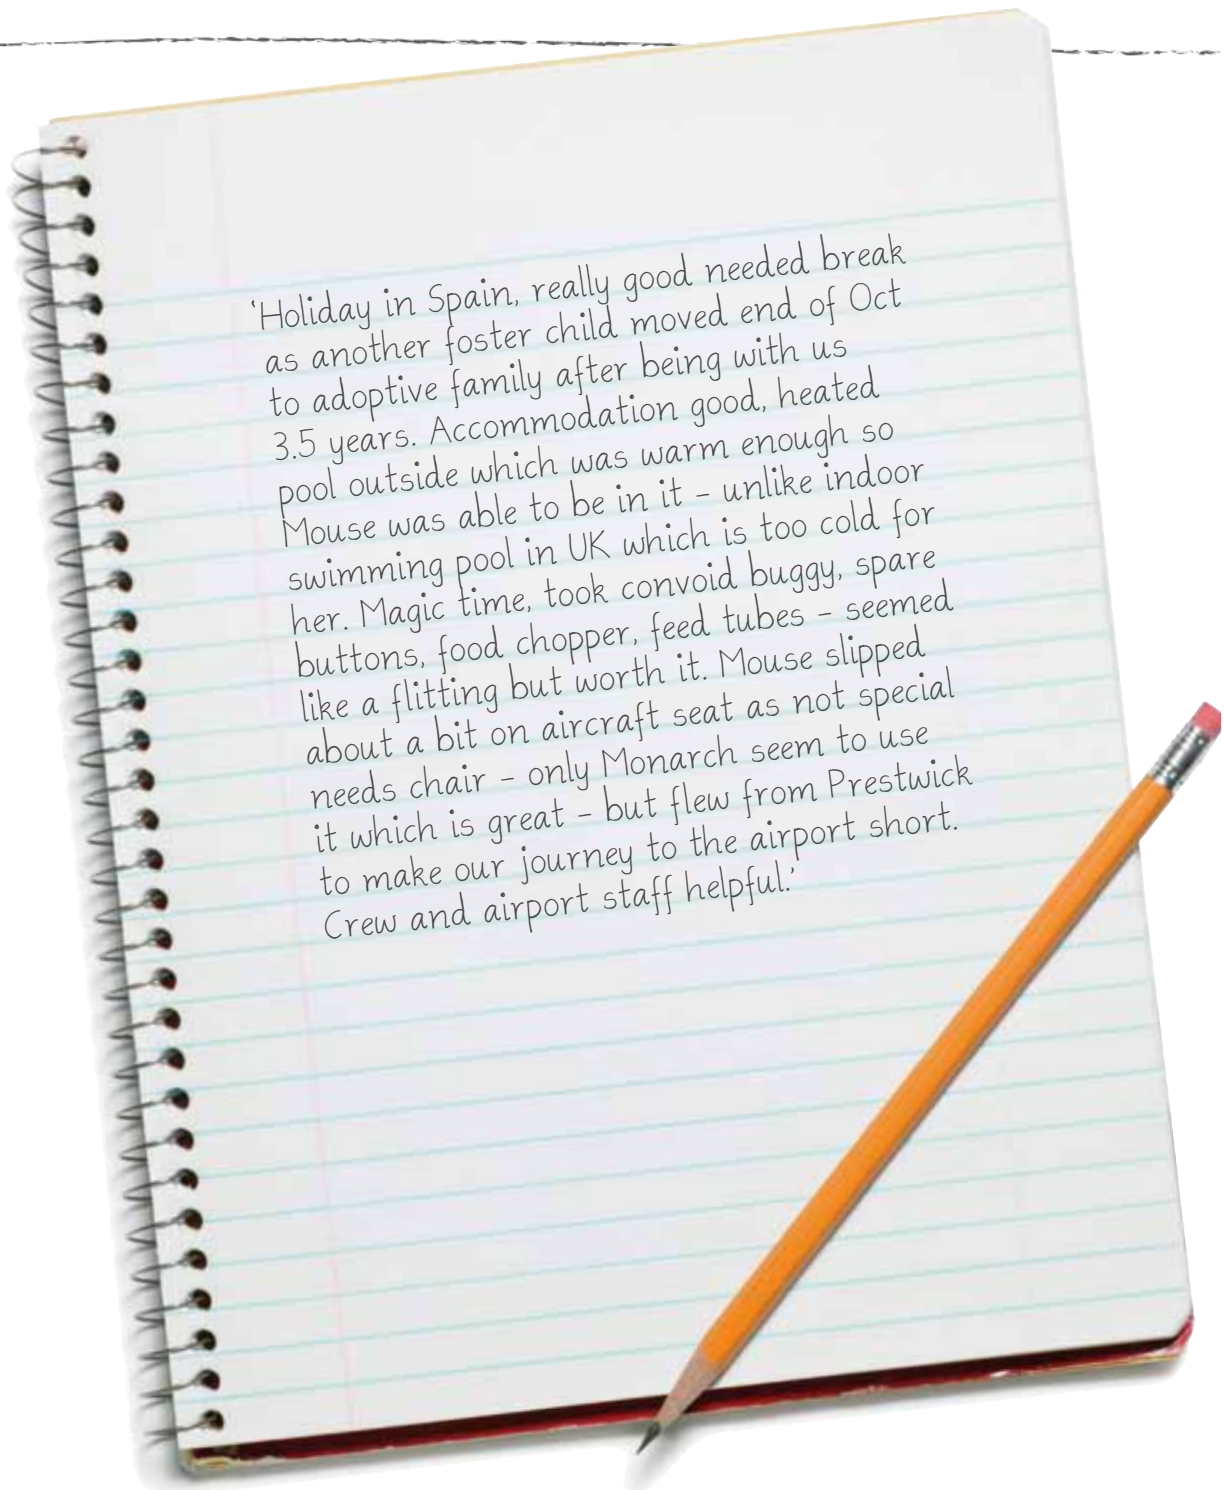 ‘Holiday in Spain, really good needed break
as another foster child moved end of Oct
to adoptive family after being with us
3.5 years. Accommodation good, heated
pool outside which was warm enough so
Mouse was able to be in it – unlike indoor
swimming pool in UK which is too cold for
her. Magic time, took convoid buggy, spare
buttons, food chopper, feed tubes – seemed
like a flitting but worth it. Mouse slipped
about a bit on aircraft seat as not special
needs chair – only Monarch seem to use
it which is great – but flew from Prestwick
to make our journey to the airport short.
Crew and airport staff helpful.’